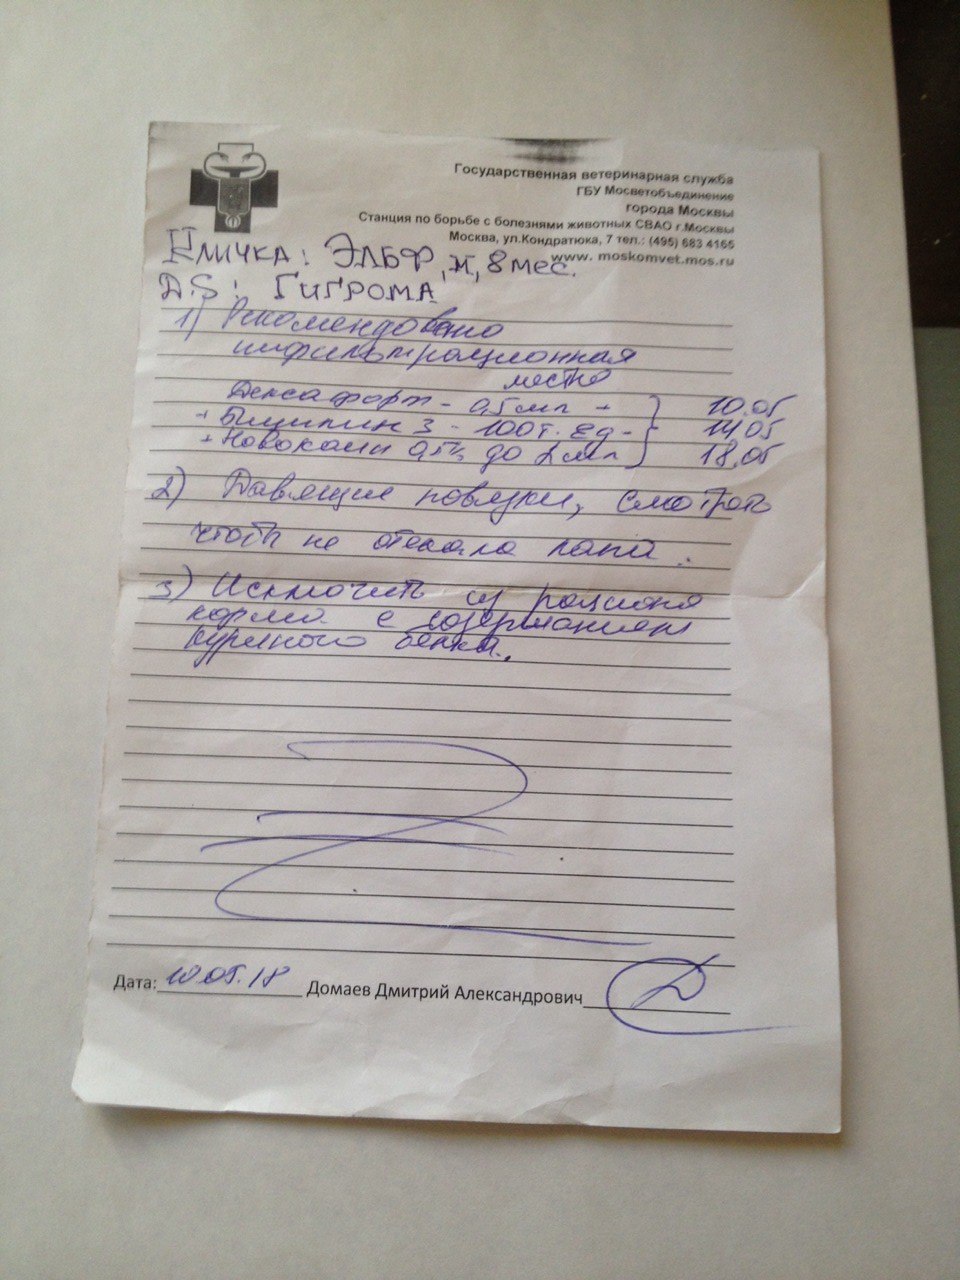 Государственная ветеринарная служба
ГБУ Мосветобъединение
города Москвы
Станция по борьбе с болезнями животных СВАО г.Москвы
Москва, ул.Кондратюка, 7 тел.: (495) 683 4165
www. moskomvet.mos.ru
Кличка: Эльф, м, 8 мес.
D.S: Гигрома
1) Рекомендовано
инфильтрационная
местно
Дексафорт - 0,5 мл + 10.05
+ Бициллин 3 - 100 т. ед - 14.05
+ Новокаин 0,5% до 2 мл 18.05
2) Давящие повязки, смотреть
чтобы не отекала лапа.
3) Исключить из рациона
корма с содержанием
куриного белка.
Дата: 10.05.18 Домаев Дмитрий Александрович